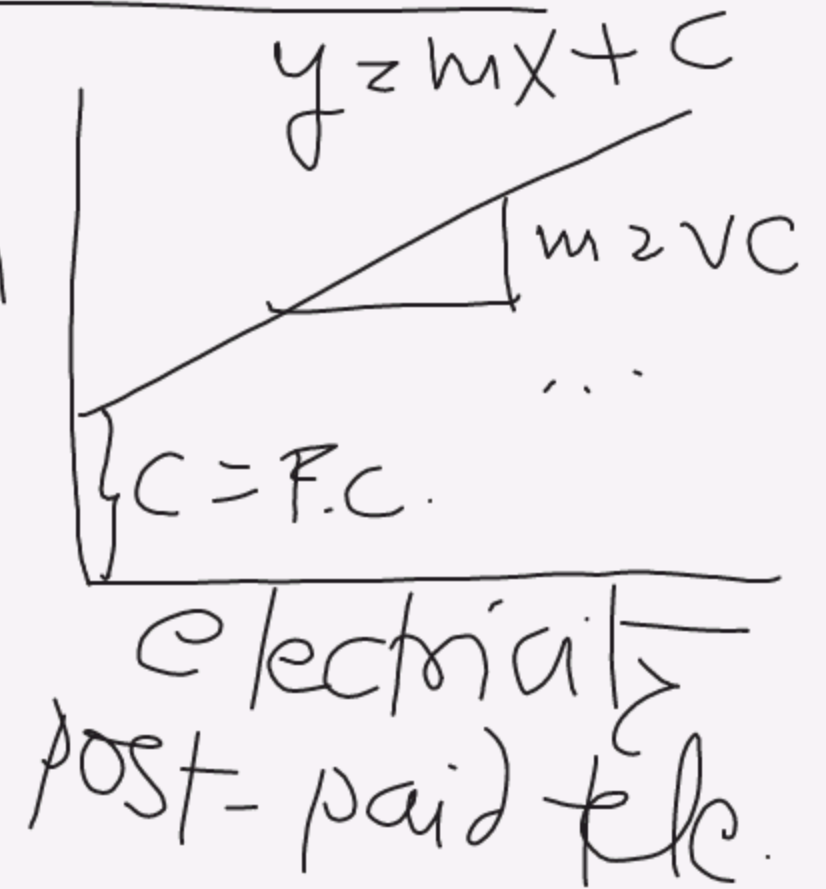 y = mx + C
m = VC
C = F.C.
electricity
post-paid tele.